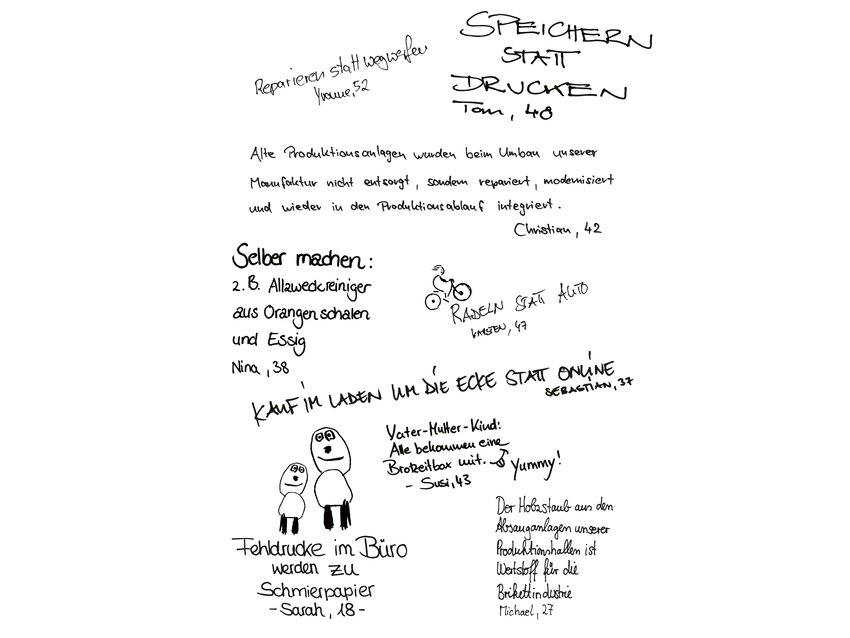 Reparieren statt wegwerfen
Yvonne, 52
SPEICHERN
STATT
DRUCKEN
Tom, 48
Alte Produktionsanlagen wurden beim Umbau unserer
Manufaktur nicht entsorgt, sondern repariert, modernisiert
und wieder in den Produktionsablauf integriert.
Christian, 42
Selber machen:
z.B. Allzweckreiniger
aus Orangenschalen
und Essig
Nina, 38
RADELN STATT AUTO
KARSTEN, 47
KAUF IM LADEN UM DIE ECKE STATT ONLINE
SEBASTIAN, 37
Vater-Mutter-Kind:
Alle bekommen eine
Brotzeitbox mit.
Yummy!
- Susi, 43
Fehldrucke im Büro
werden zu
Schmierpapier
- Sarah, 18 -
Der Holzstaub aus den
Absauganlagen unserer
Produktionshallen ist
Wertstoff für die
Brikettindustrie
Michael, 27